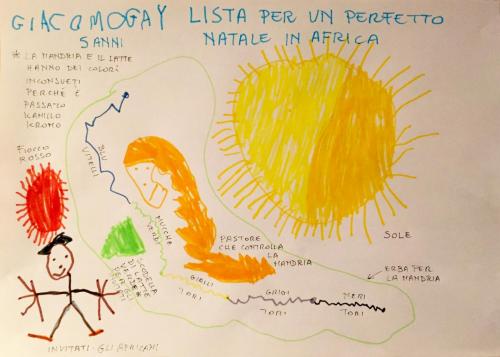 GIACOMOGAY LISTA PER UN PERFETTO
5 ANNI NATALE IN AFRICA
* LA MANDRIA E IL LATTE
HANNO DEI COLORI
INCONSUETI
PERCHÉ È
PASSATO
KAMILLO
KROMO
FIOCCO
ROSSO
BLU
VITELLI
MUCCHE
VERDI
SCODELLA
DI LATTE
VERDE*
PER GLI
INVITATI
PASTORE
CHE CONTROLLA
LA
MANDRIA
SOLE
ERBA PER
LA MANDRIA
GIALLI
TORI
GRIGI
TORI
NERI
TORI
INVITATI - GLI AFRICANI